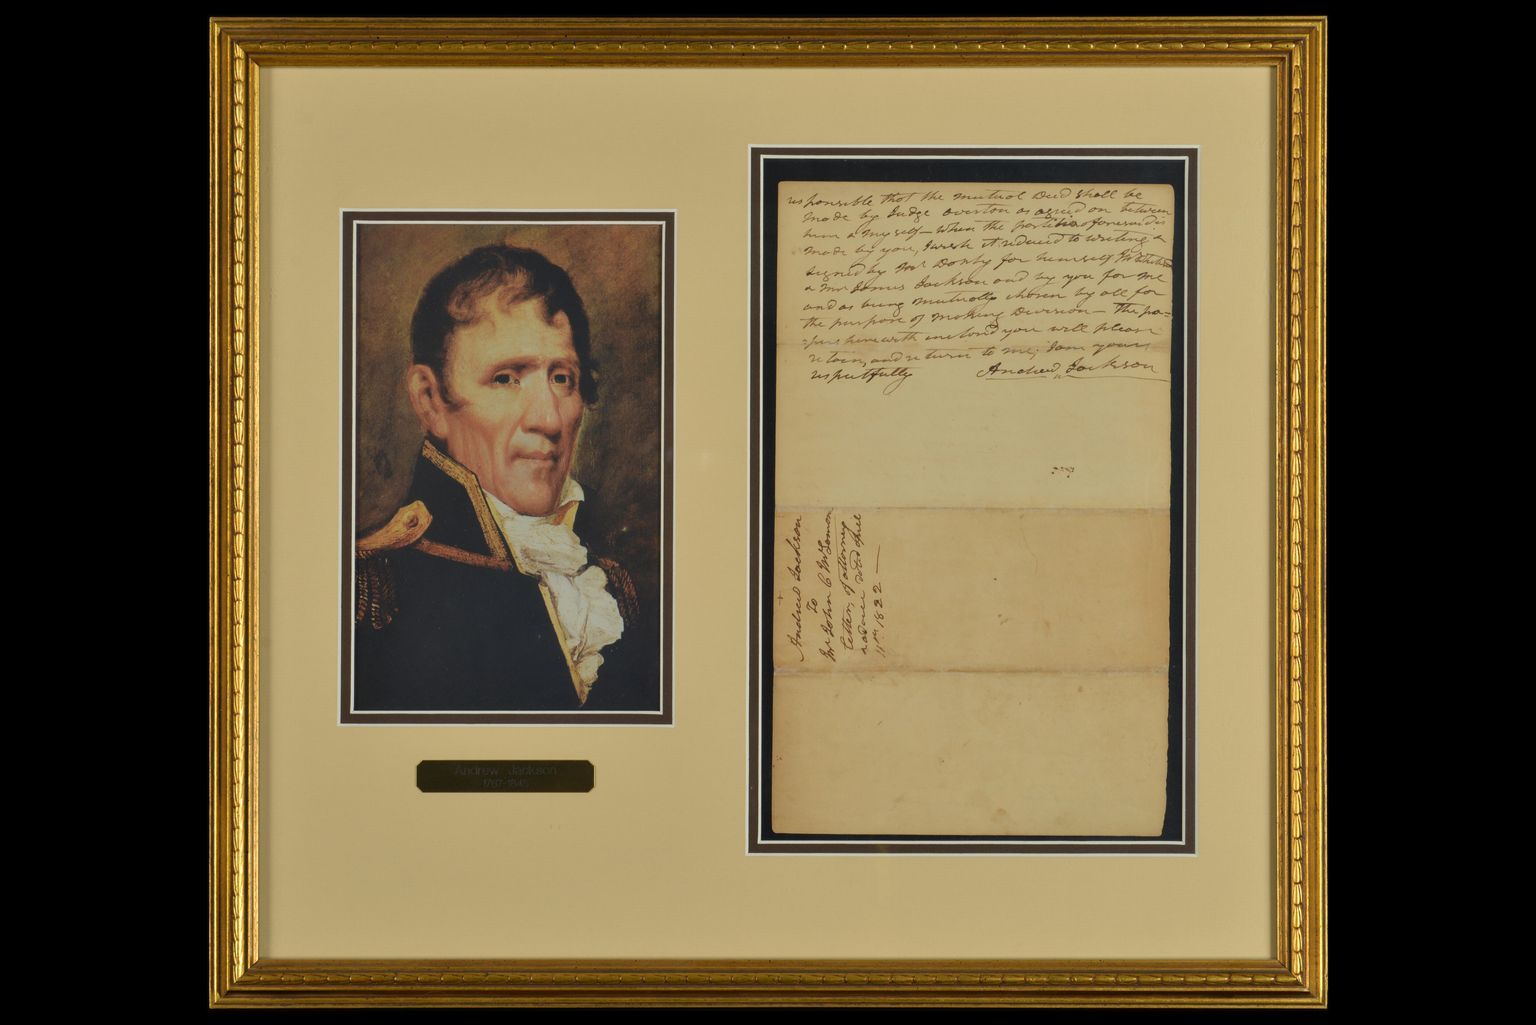 responsible that the mutual Deed shall be
made by Judge overton as agreed on between
him & myself— when the partition aforesaid is
made by you, I wish it reduced to writing &
signed by Mr Donly for himself
& Mr James Jackson and by you for me
and as being mutually chosen by all for
the purpose of making Division— The pa=
=pers herewith inclosd you will please
retain, and return to me, I am yours
respectfully Andrew Jackson
Andrew Jackson
To
Mr John C McLemore
letter of attorney
& advice
11th 1822 —
Andrew Jackson
1767-1845